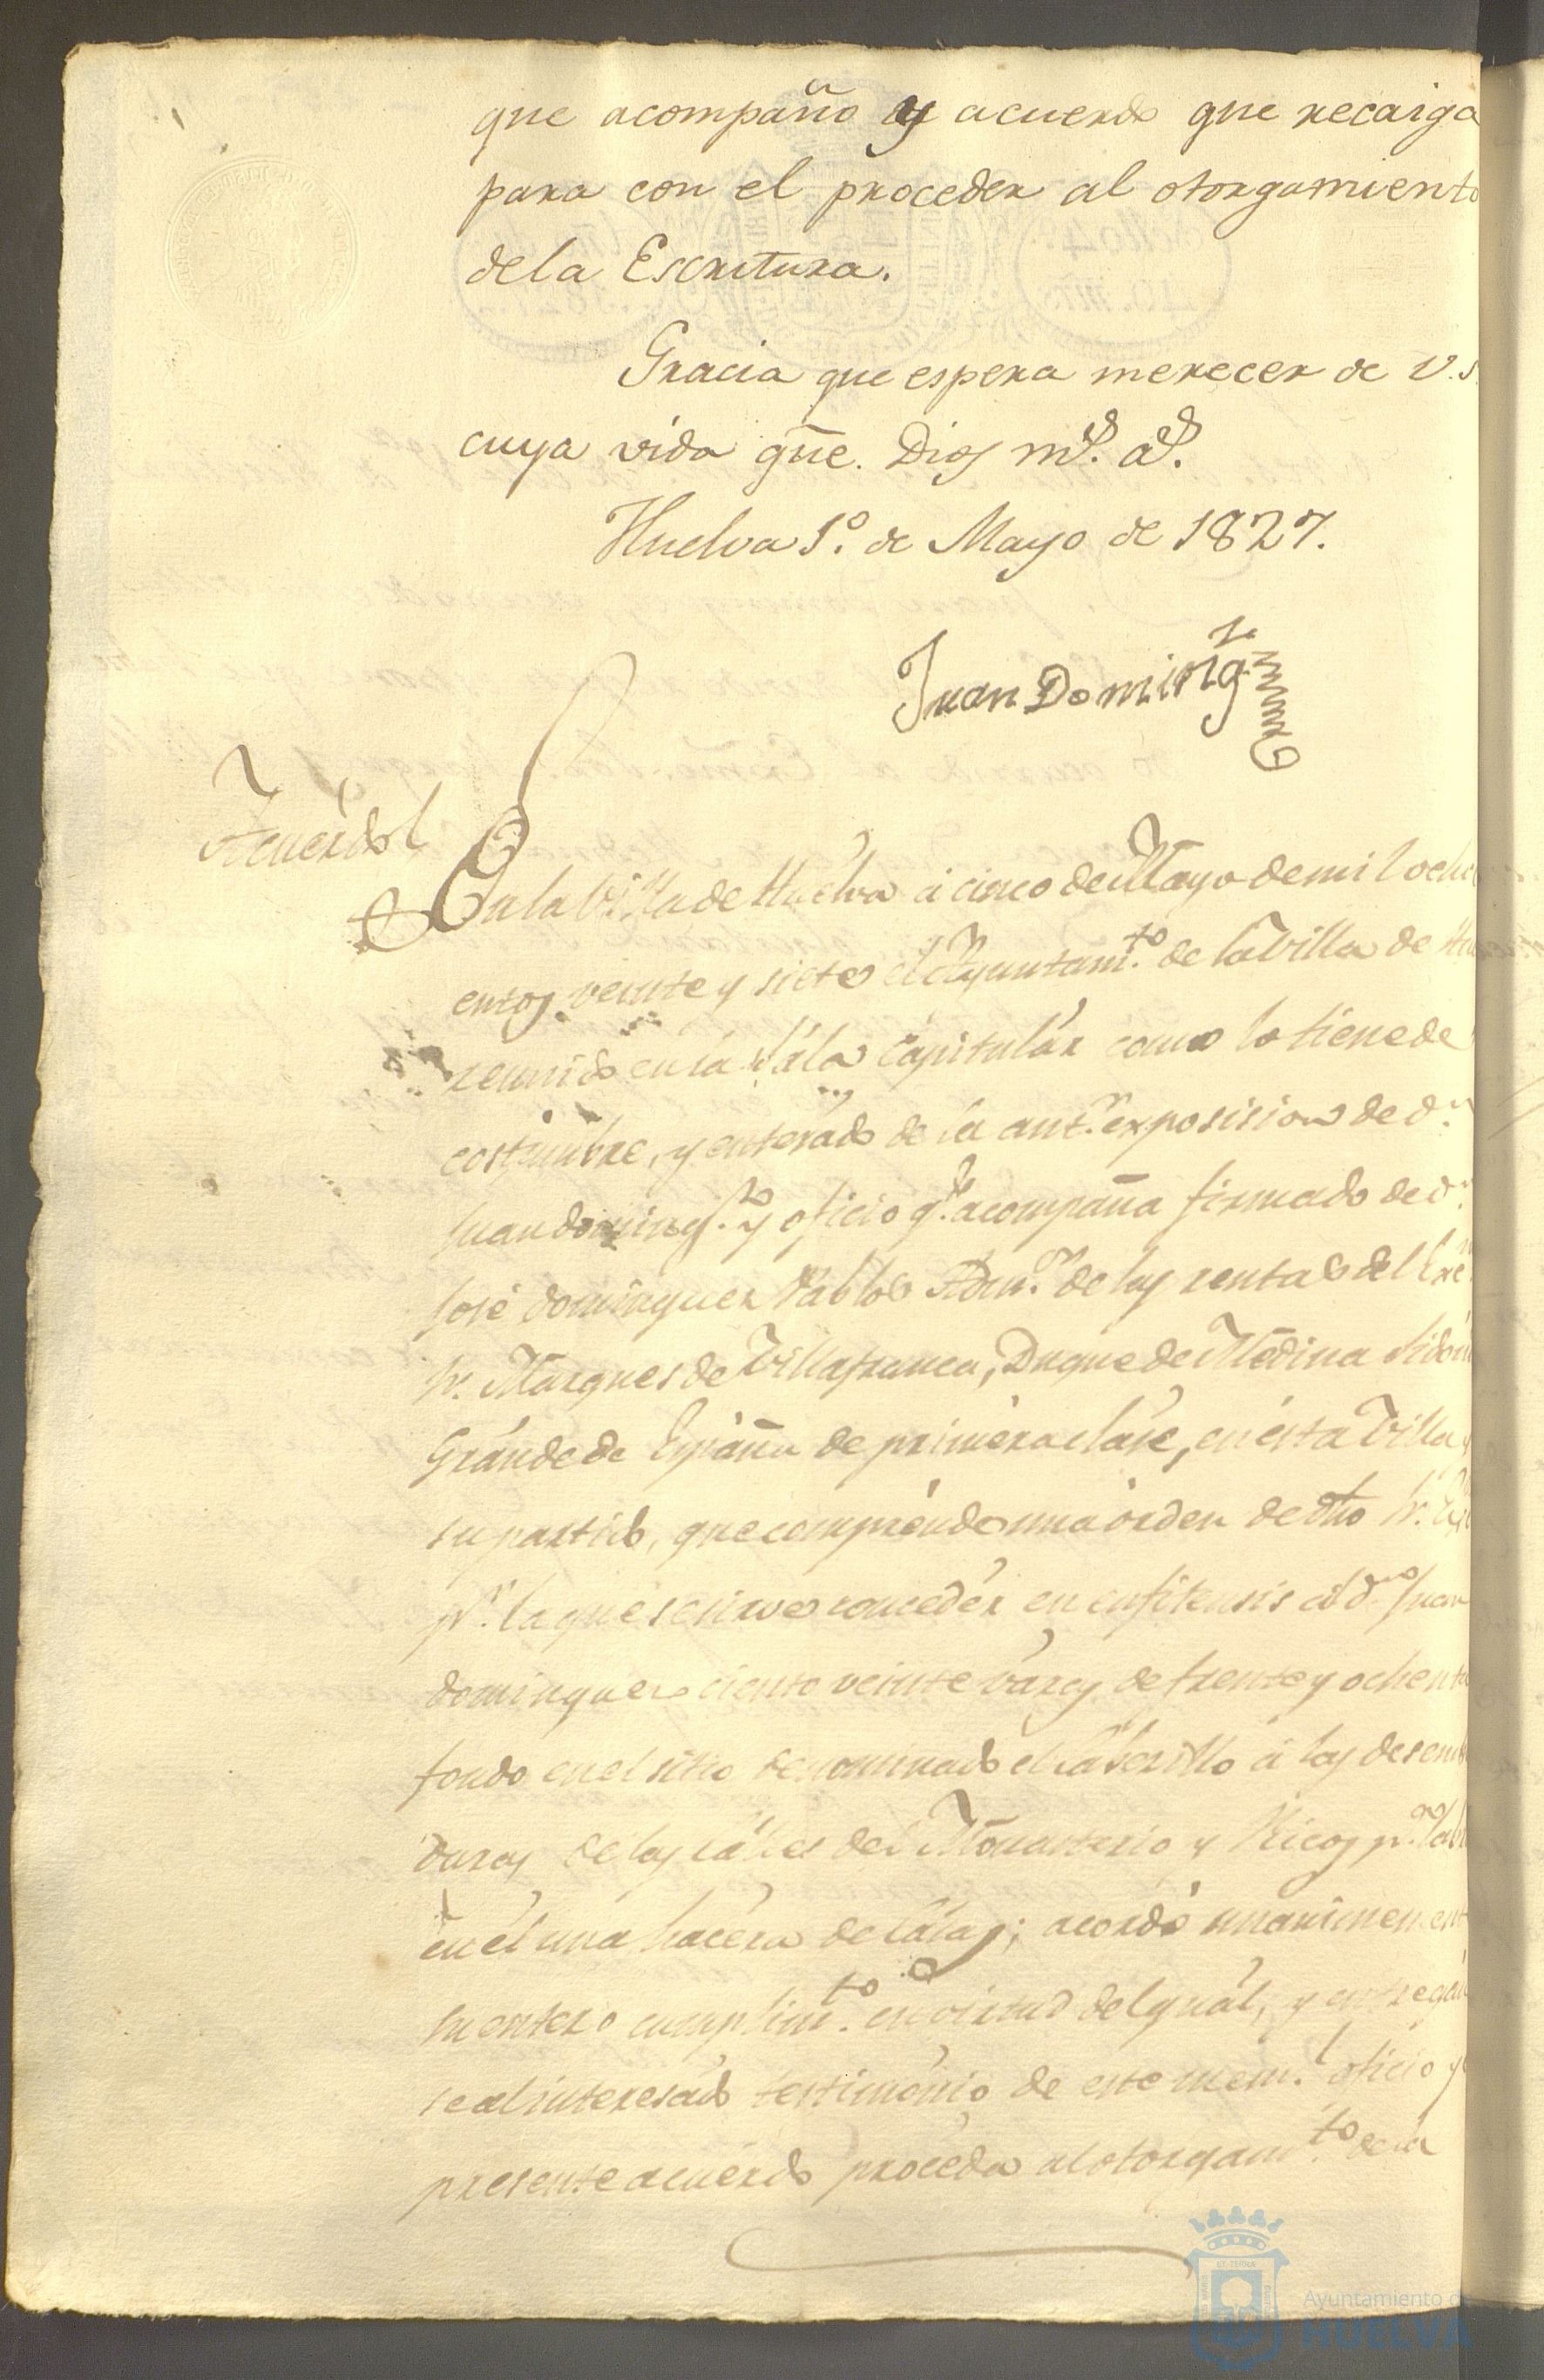 que acompaño y acuerdo que recaiga
para con el proceder al otorgamiento
dela Escritura.
Gracia que espera merecer de V.S.
cuya vida gue. Dios ms. as.
Huelva 1º. de Mayo de 1827.
Juan Doming.z
Acuerdo
En la Villa de Huelva á cinco de Mayo de mil ochoci
entos veinte y siete el Ayuntam.to de la Villa de
reunido en la Sála capitulár como lo tiene de
costumbre, y enterado de la ant.r exposision de d.n
Juan doming.z y oficio q.e acompaña firmado de d.n
José dominguez Pablos Adm.or de las rentas del
Sr. Marques de Villafranca, Duque de Medina Sidonia
Gránde de España de priméra cláse, en ésta Villa y
su partido, que comprénde una órden de dho Sr.
p.r la que se sirve concedér en enfiteusis á d.n Juan
dominguez ciento veinte váras de frente y ochenta
fondo en el sitio denominado el á las desemb
duras de las cálles del Monasterio y Ricos p.a
en él una hacéra de cásas; acordó unanimement
su entero cumplim.to en virtud del quál, y entregán
se al interesádo testimónio de este mem.l oficio y
presente acuérdo procéda al otorgam.to de la
Ayuntamiento de
HUELVA